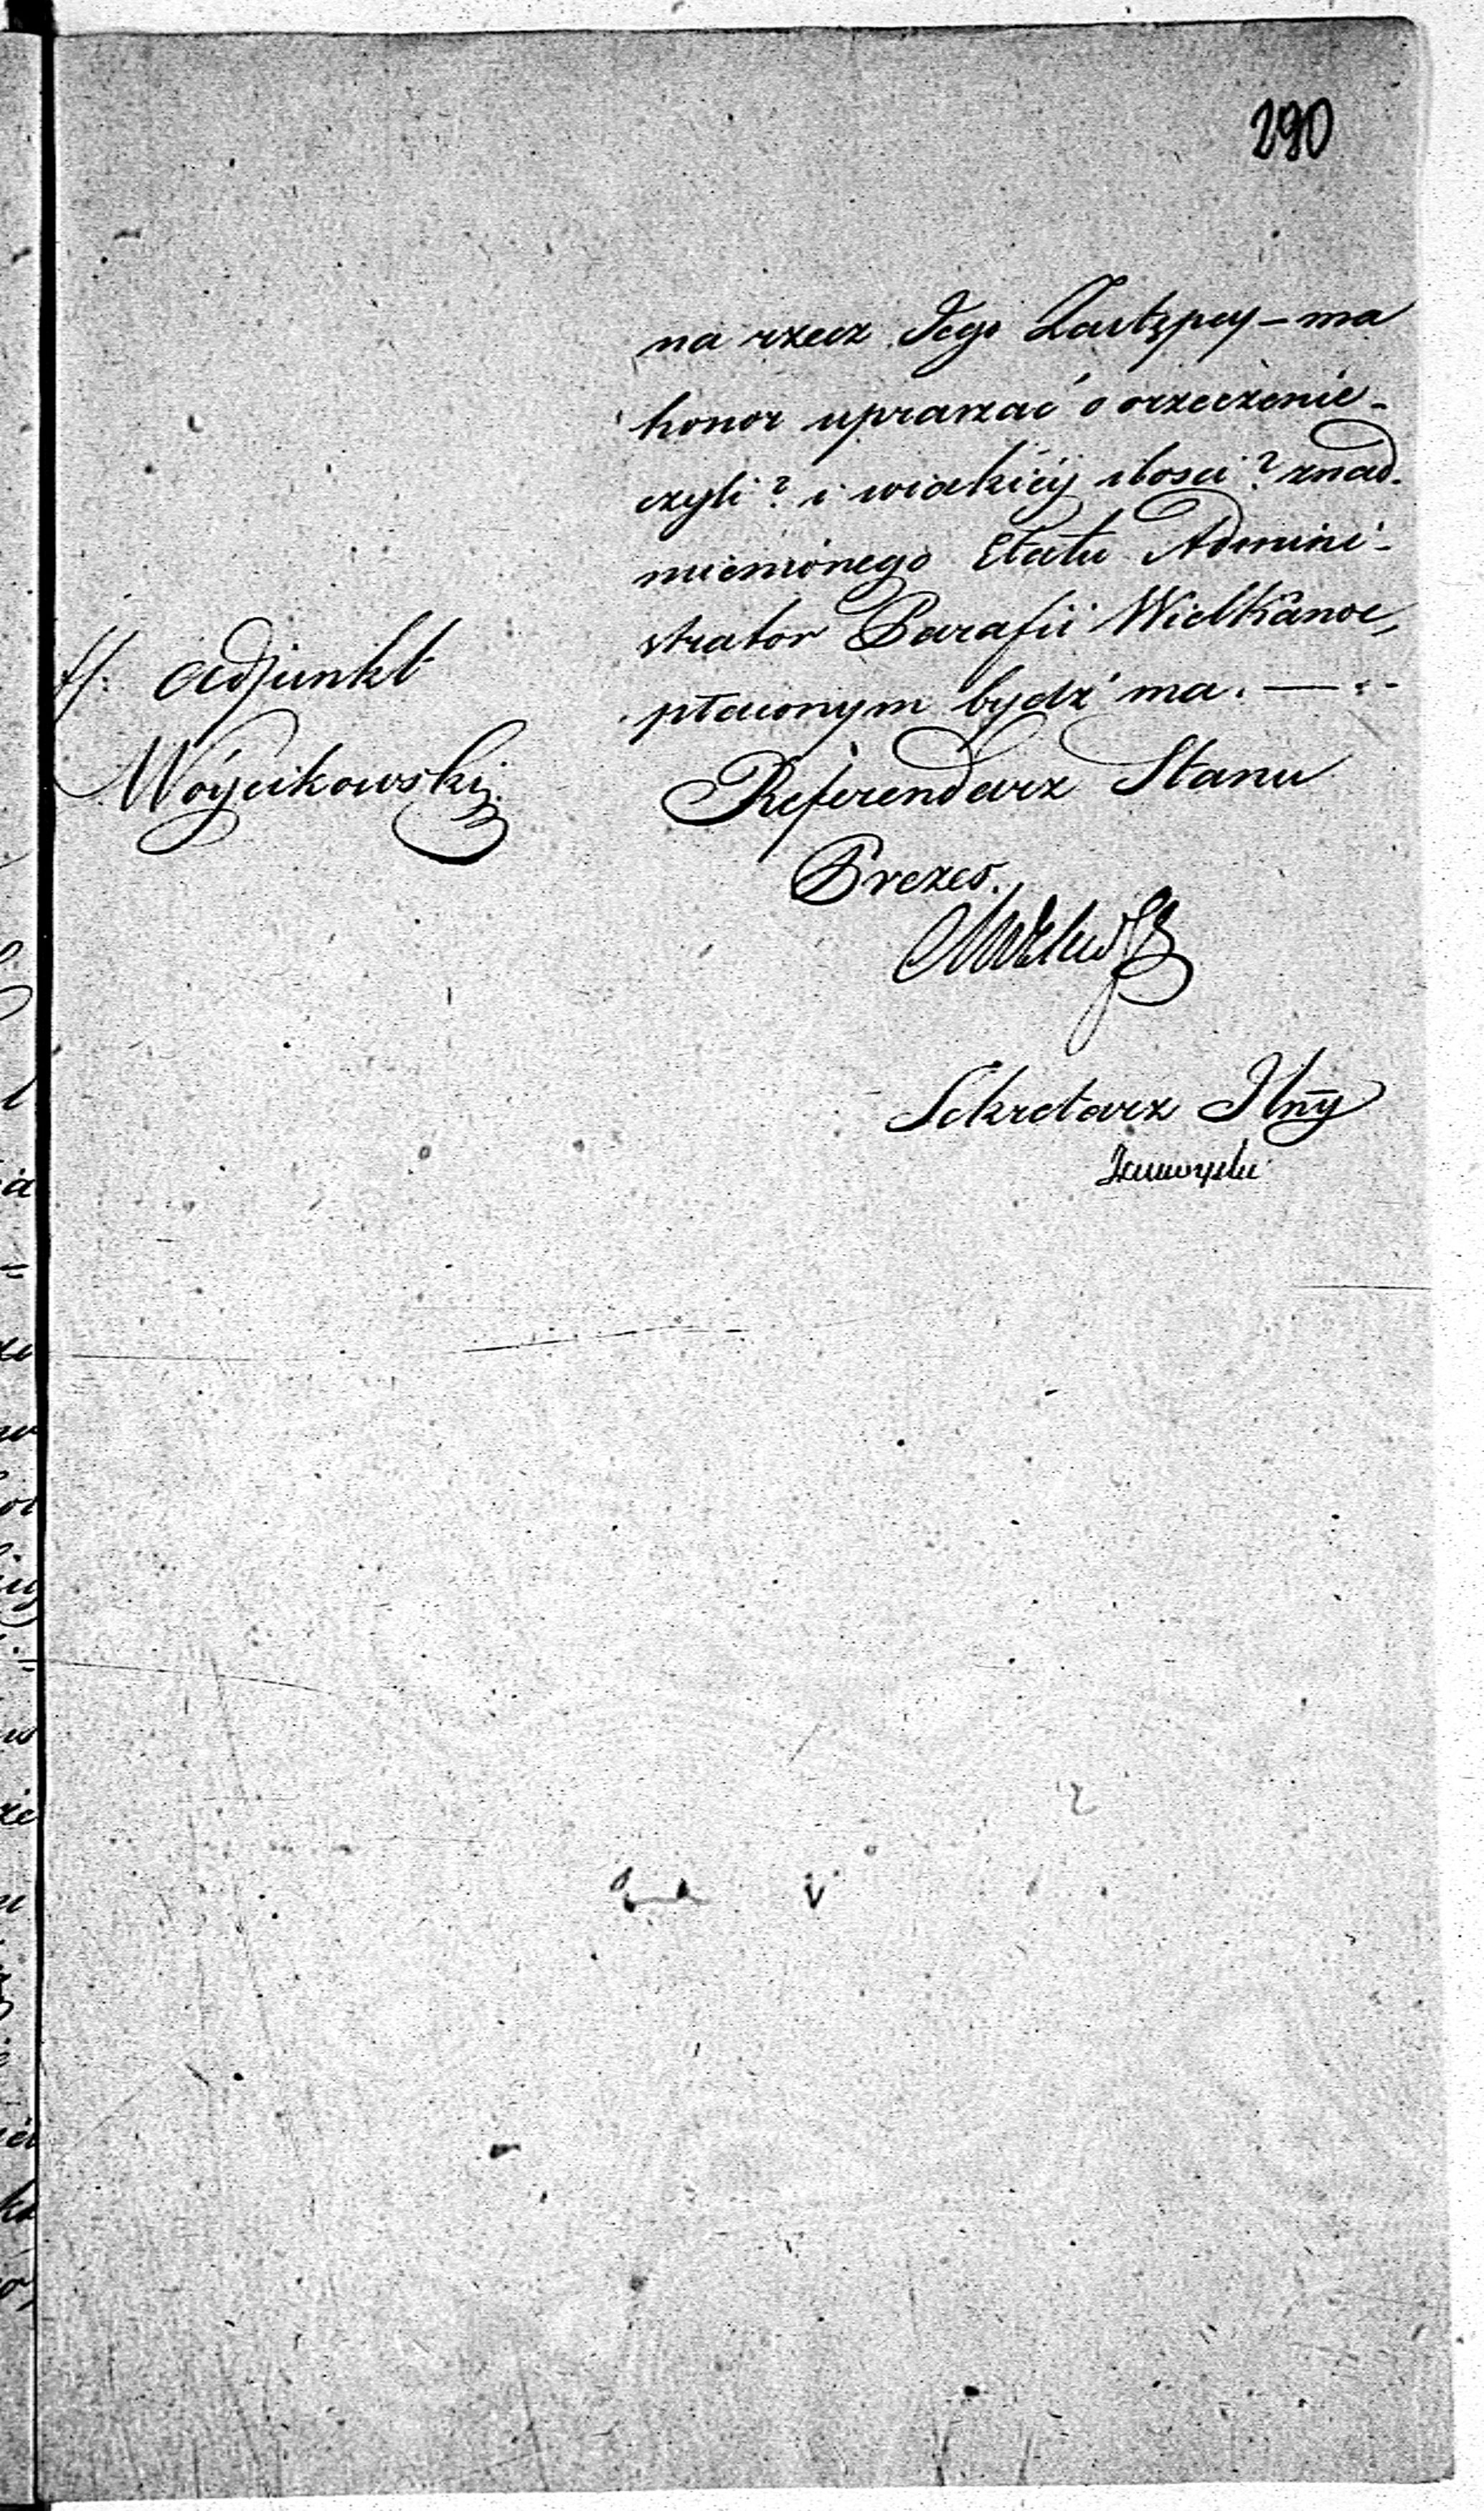 290
na rzecz Jego Zastępcy – ma
honor upraszać o orzeczenie –
czyli? i wiakiéy ilosci? znad-
mienionego Etatu Admini-
strator Parafii Wielkanoc,
płaconym bydź ma. —
Referendarz Stanu
Prezes.
Sekretarz Jlny
Adjunkt
Wóycikowski